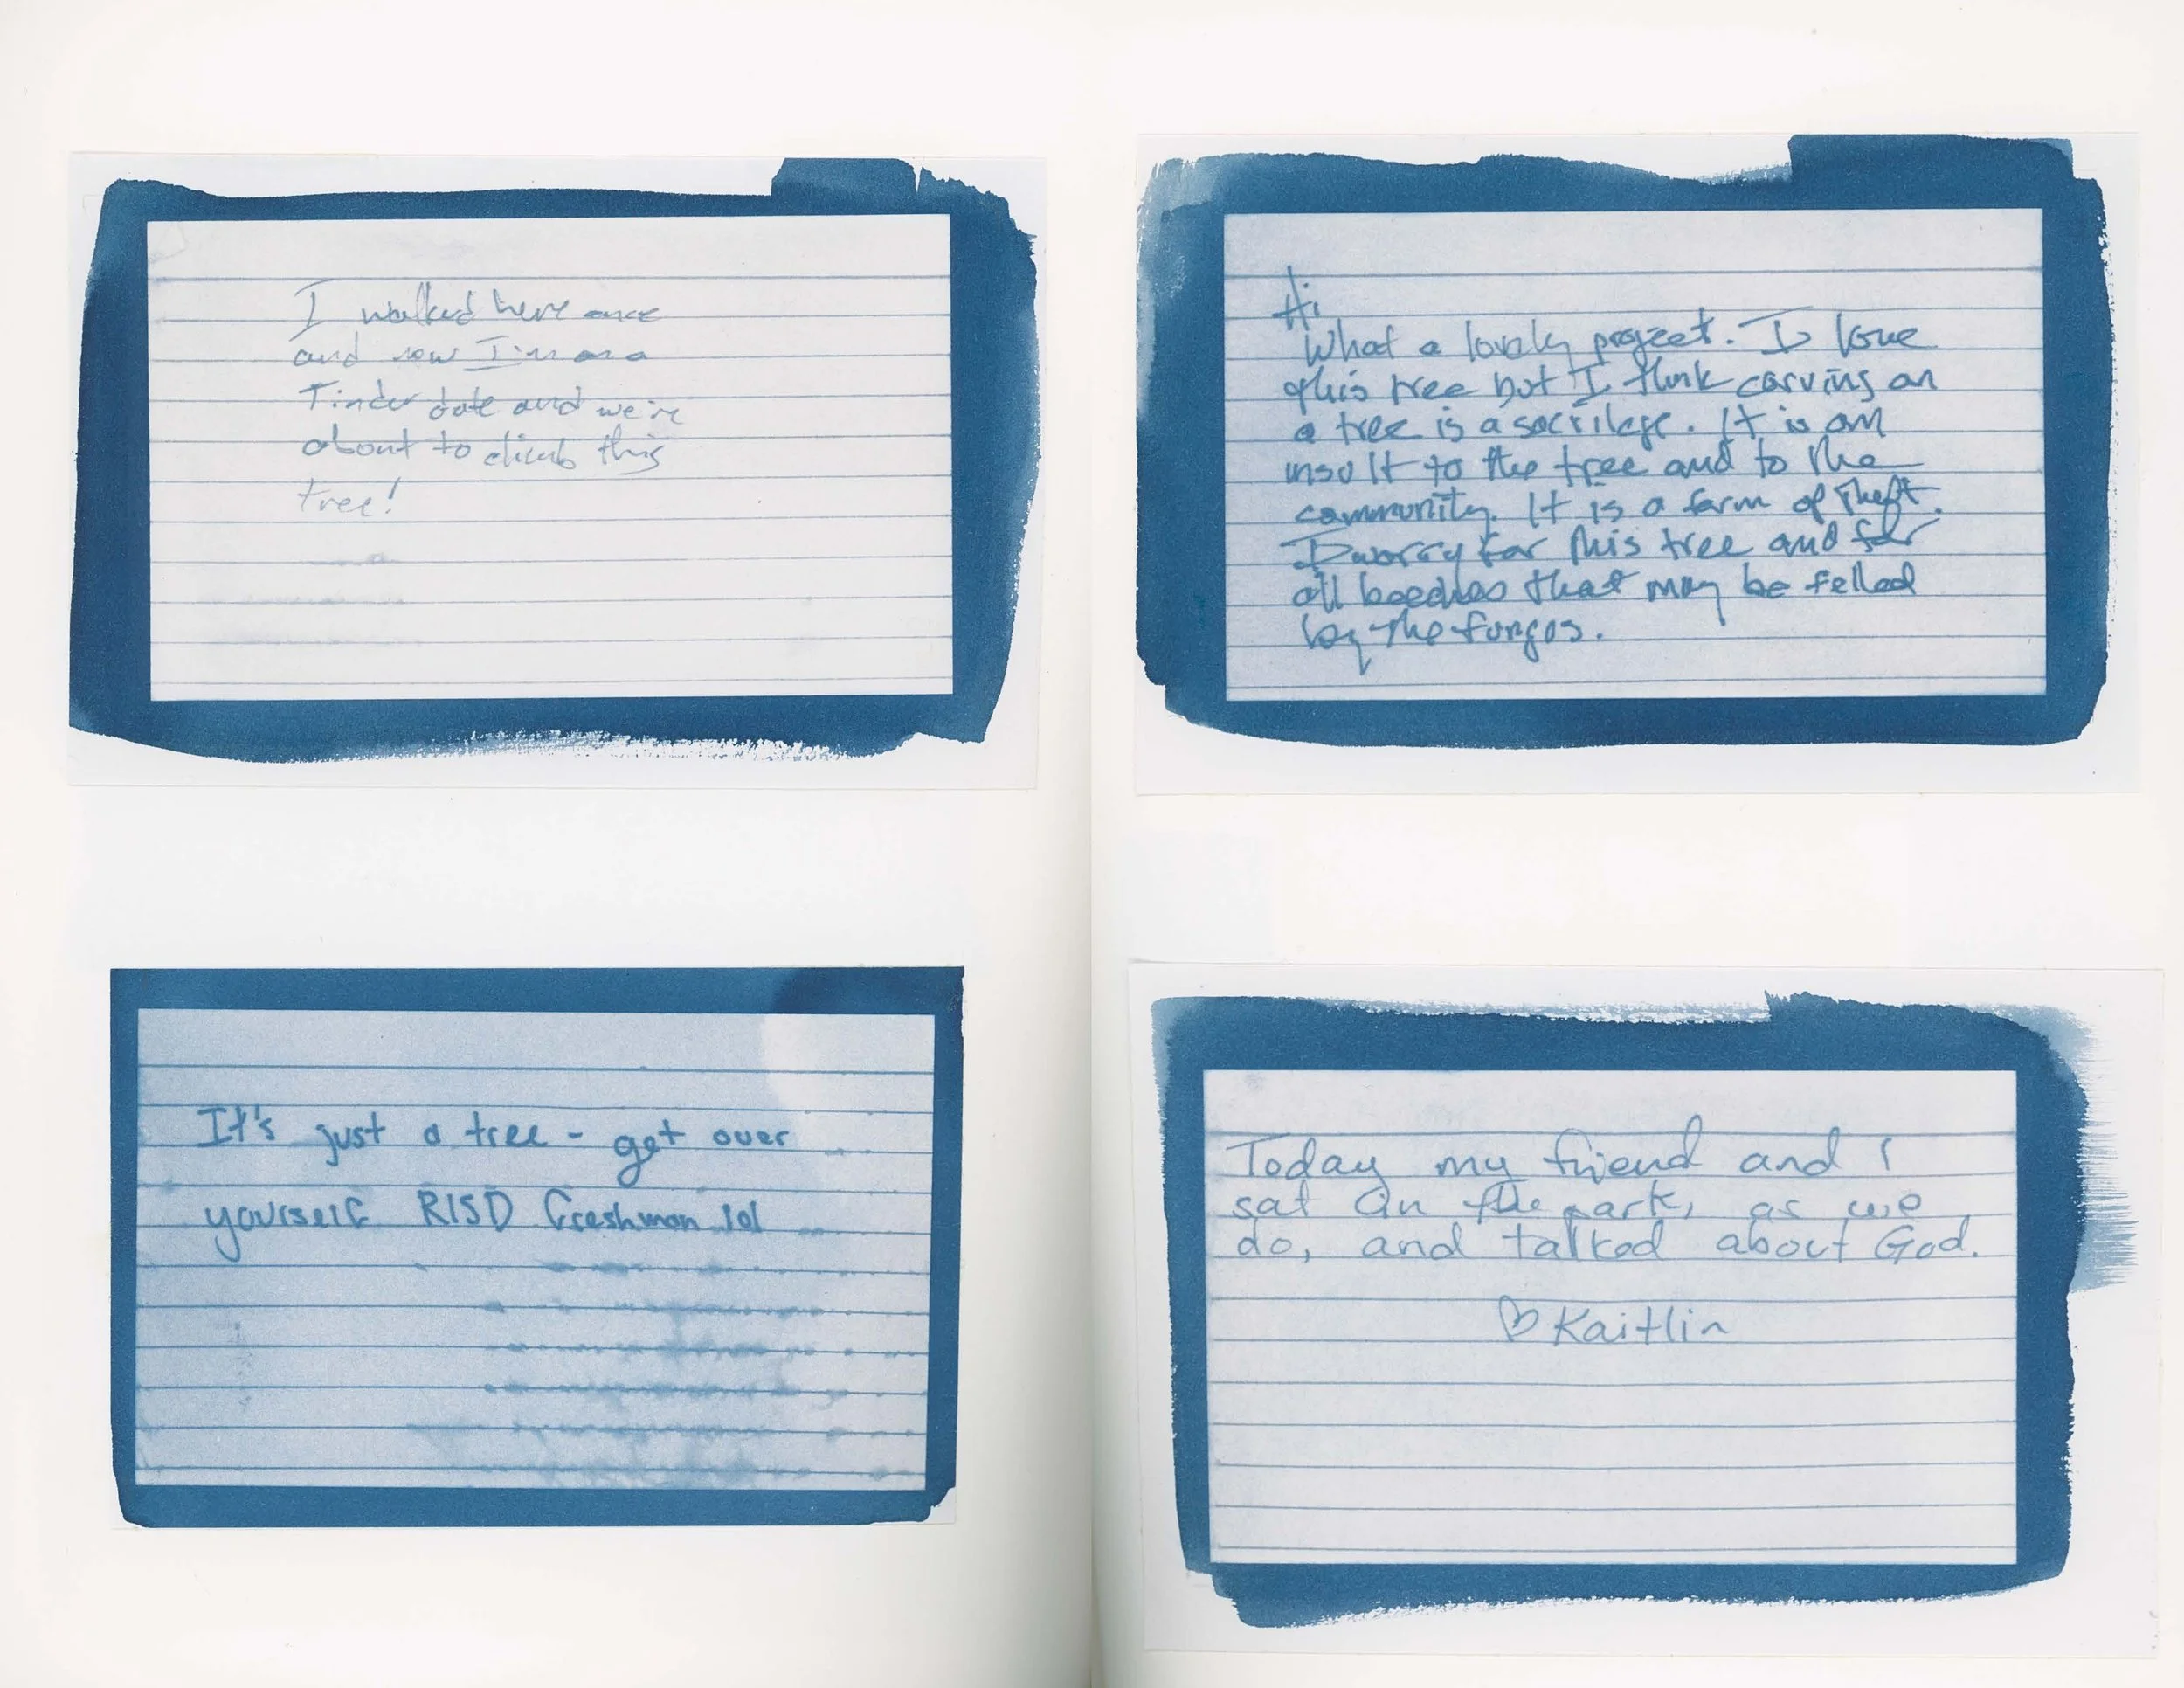 I walked here once
and now I'm on a
Tinder date and we're
about to climb this
tree!
Hi
What a lovely project. I love
this tree but I think carving on
a tree is a sacrilege. It is an
insult to the tree and to the
community. It is a form of theft.
I worry for this tree and for
all beeches that may be felled
by the fungus.
It's just a tree - get over
yourself RISD freshman lol
Today my friend and I
sat in the park, as we
do, and talked about God.
♡ Kaitlin